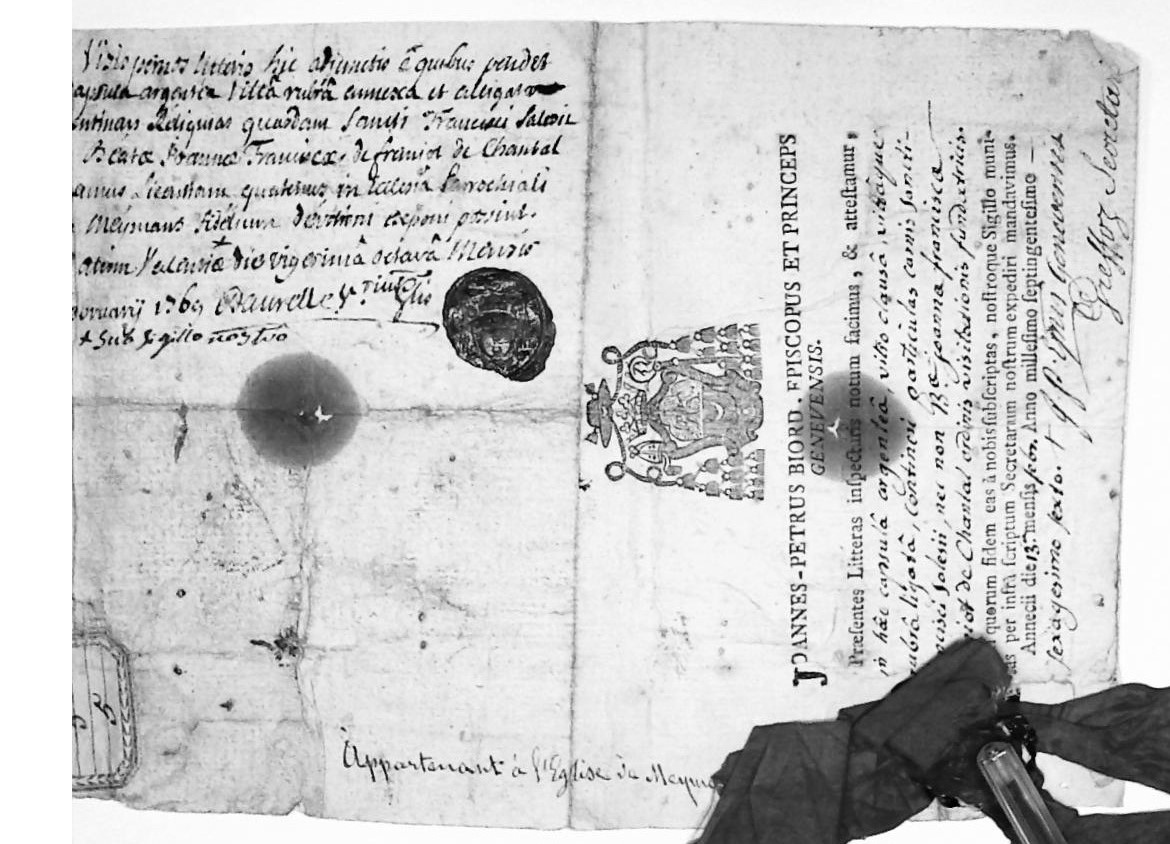 Visis presentibus litteris hic adjunctis è quibus pendet
capsula argentea vittâ rubrâ annexa et alligata
Reliquias quasdam Sancti Francisci Salesii
Beatæ Joannæ Franciscæ, de fremiot de Chantal
licentiam quatenus in Ecclesia Parrochiali
fidelium devotioni exponi possint.
datum Valentiæ die vigesimâ octavâ Mensis
1769
+ Sub sigillo nostro
JOANNES-PETRUS BIORD, EPISCOPUS ET PRINCEPS
GENEVENSIS.
Præsentes Litteras inspecturis notum facimus, & attestamur,
in hâc capsulâ argenteâ, vitro clausâ, vittâque
rubrâ ligatâ, contineri particulas carnis Sancti
Salesii, nec non Bæ joanna francisca
de Chantal ordinis visitationis fundatricis.
quorum fidem eas à nobis subscriptas, nostroque Sigillo muni-
per infrà scriptum Secretarium nostrum expediri mandavimus.
Annecii die 13. mensis Anno millesimo septingentesimo
sexagesimo sexto. +
Secretar
Appartenant à l'Eglise de